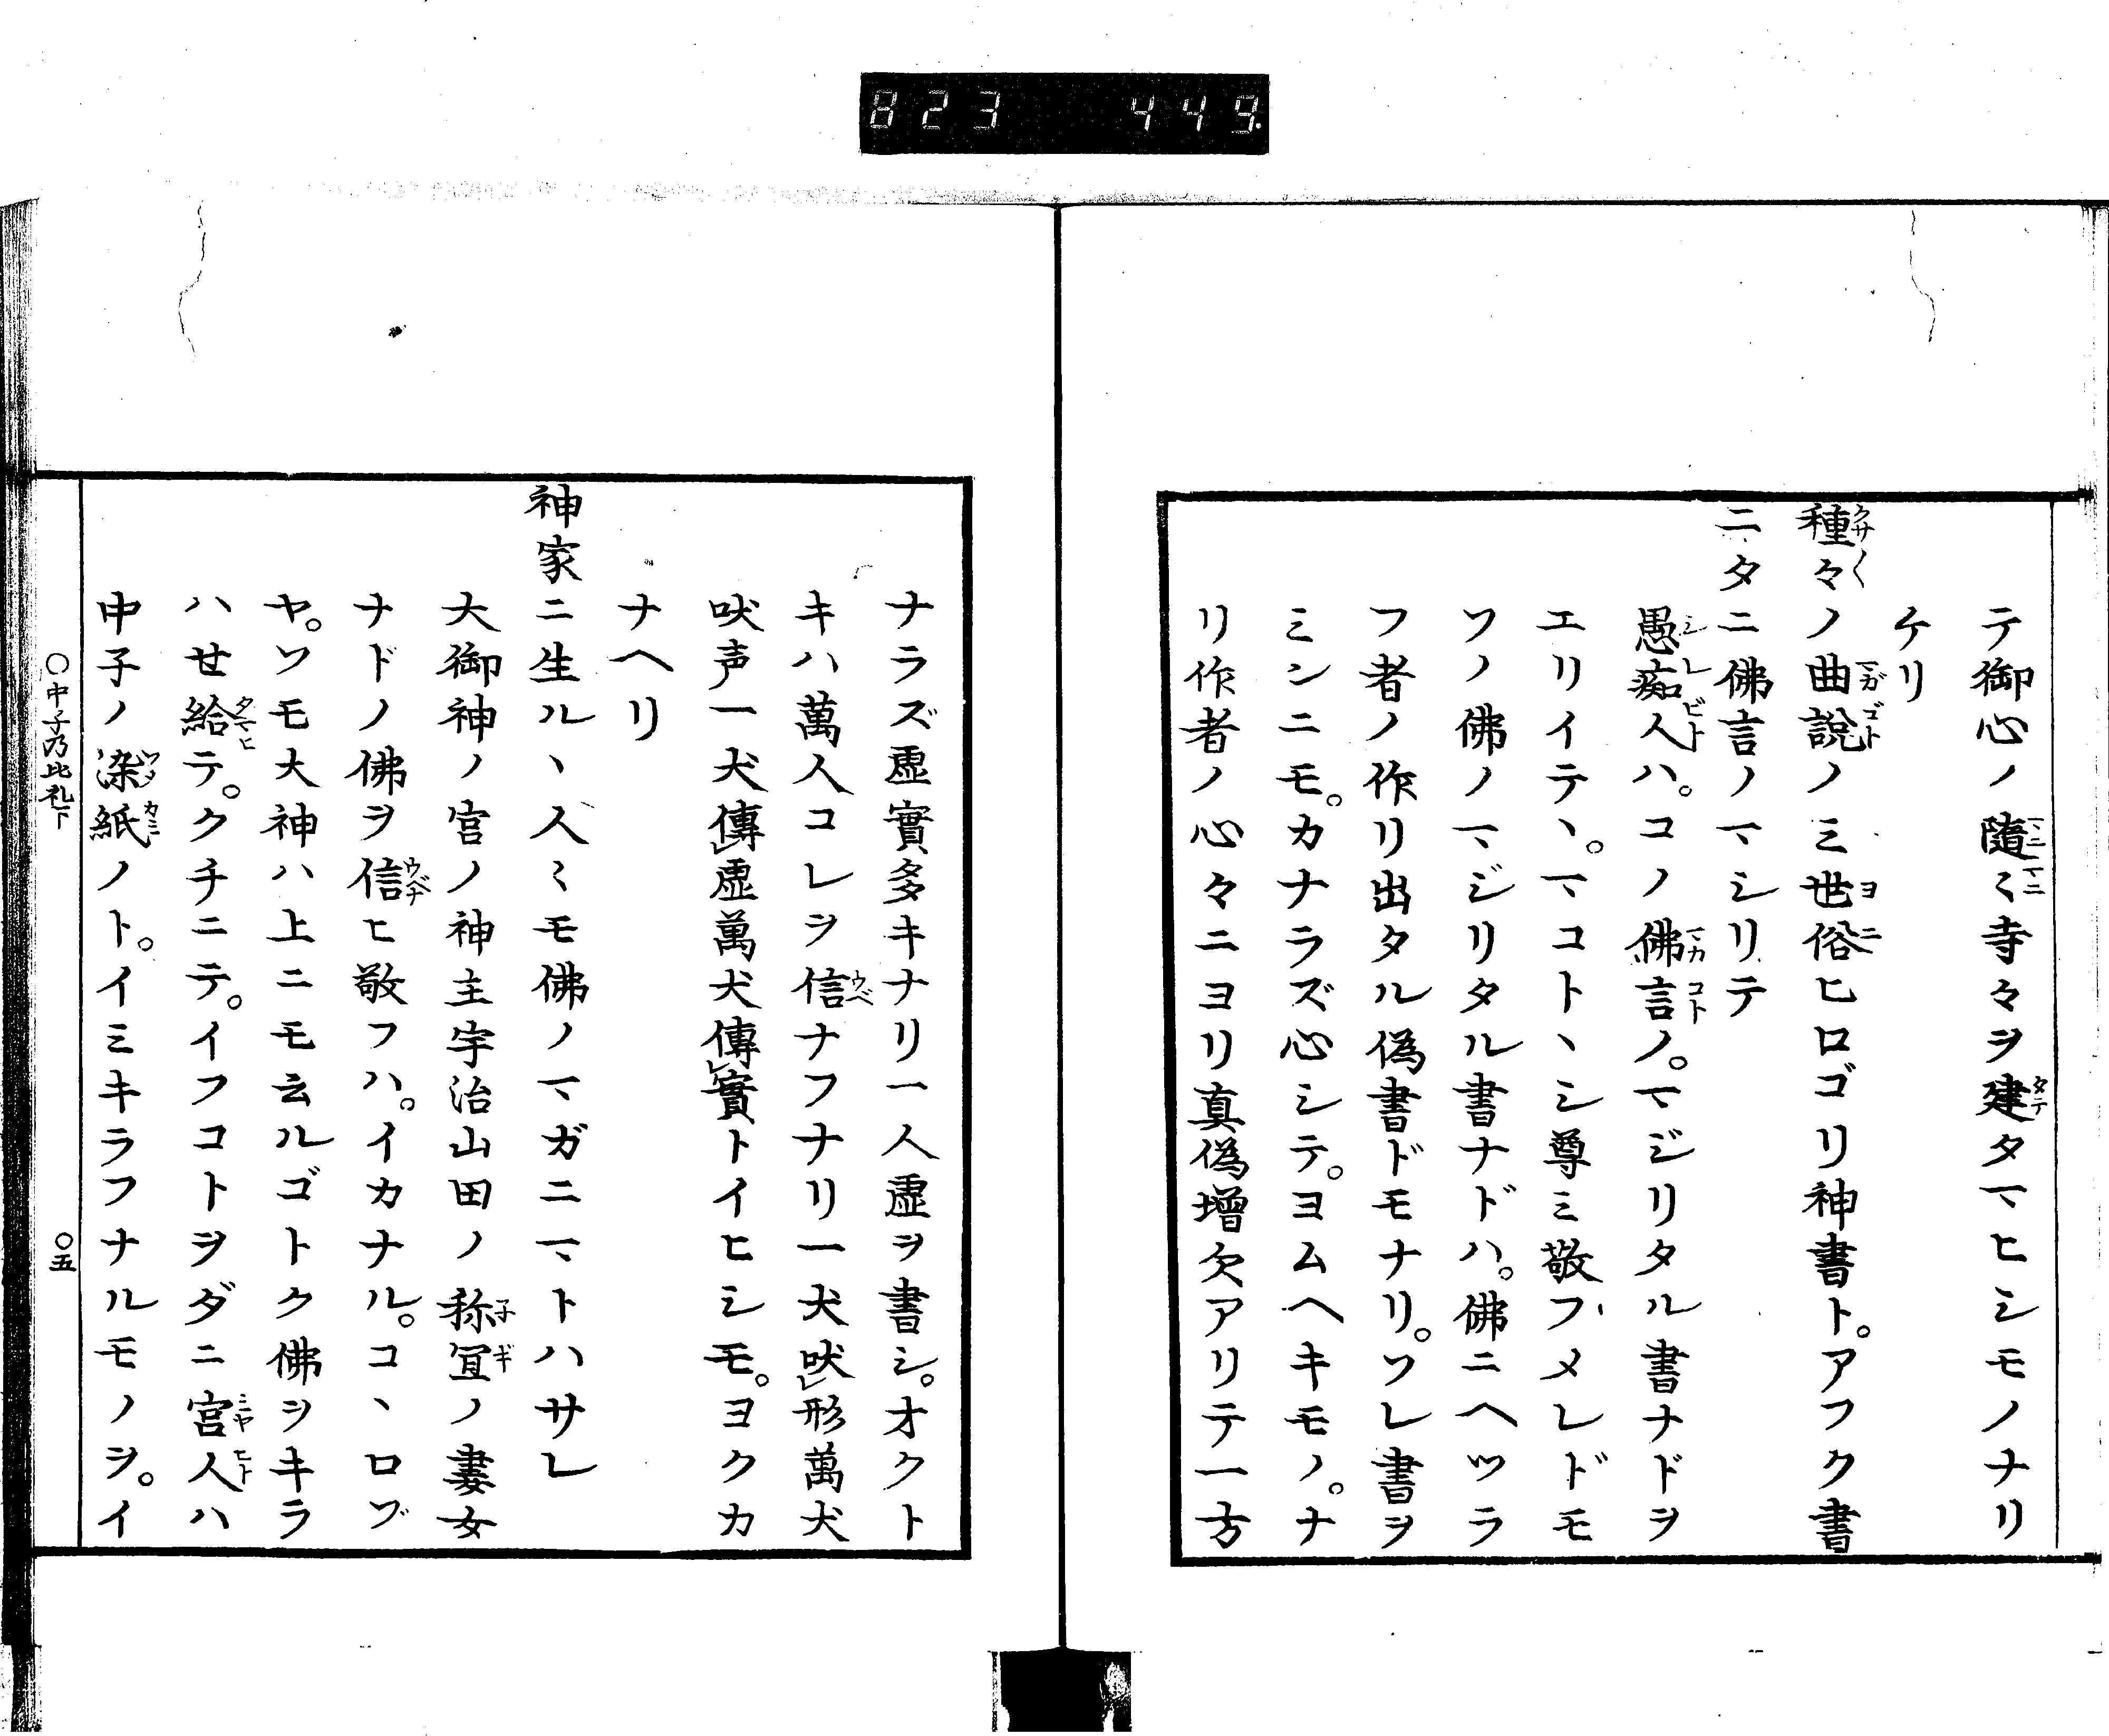 823 449.
テ御心ノ隨〻寺々ヲ建タマヒシモノナリ
ケリ
種々ノ曲説ノミ世俗ヒロゴリ神書ト。アフク書
ニタニ佛言ノマシリテ
愚痴人ハ。コノ佛言ノ。マジリタル書ナドヲ
エリイテヽ。マコトヽシ尊ミ敬フメレドモ
ソノ佛ノマジリタル書ナドハ。佛ニヘツラ
フ者ノ作リ出タル偽書ドモナリ。ソレ書ヲ
ミンニモ。カナラズ心シテ。ヨムヘキモノ。ナ
リ作者ノ心々ニヨリ真偽增欠アリテ一方
ナラズ虚實多キナリ一人虚ヲ書シ。オクト
キハ萬人コレヲ信ナフナリ一犬吠㆑形萬犬
吠声一犬傳㆑虚萬犬傳㆑實トイヒシモ。ヨクカ
ナヘリ
神家ニ生ルヽ人〻モ佛ノマガニマトハサレ
大御神ノ宮ノ神主宇治山田ノ称冝ノ妻女
ナドノ佛ヲ信ヒ敬フハ。イカナル。コヽロゾ
ヤ。ソモ大神ハ上ニモ云ルゴトク佛ヲキラ
ハせ給テ。クチニテ。イフコトヲダニ宮人ハ
中子ノ染紙ノト。イミキラフナルモノヲ。イ
○中子乃比礼下 ○五